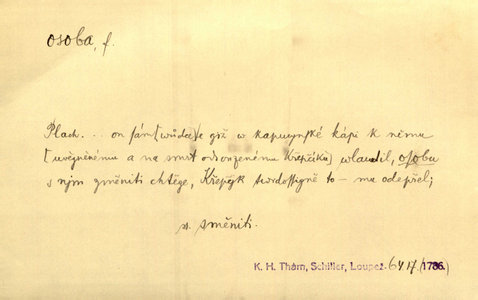 osoba, f.
Plach... on sám [wůdce] se giž w kapucynské kápi k němu
[uwězněnému a na smrt odsouzenému Křepčíku] wlaudil, osobu
s njm změniti chtěge, Křepčjk twrdossigně to – mu odepřel;
v. směniti.
K. H. Thám, Schiller, Loupež. 64 (1786.)